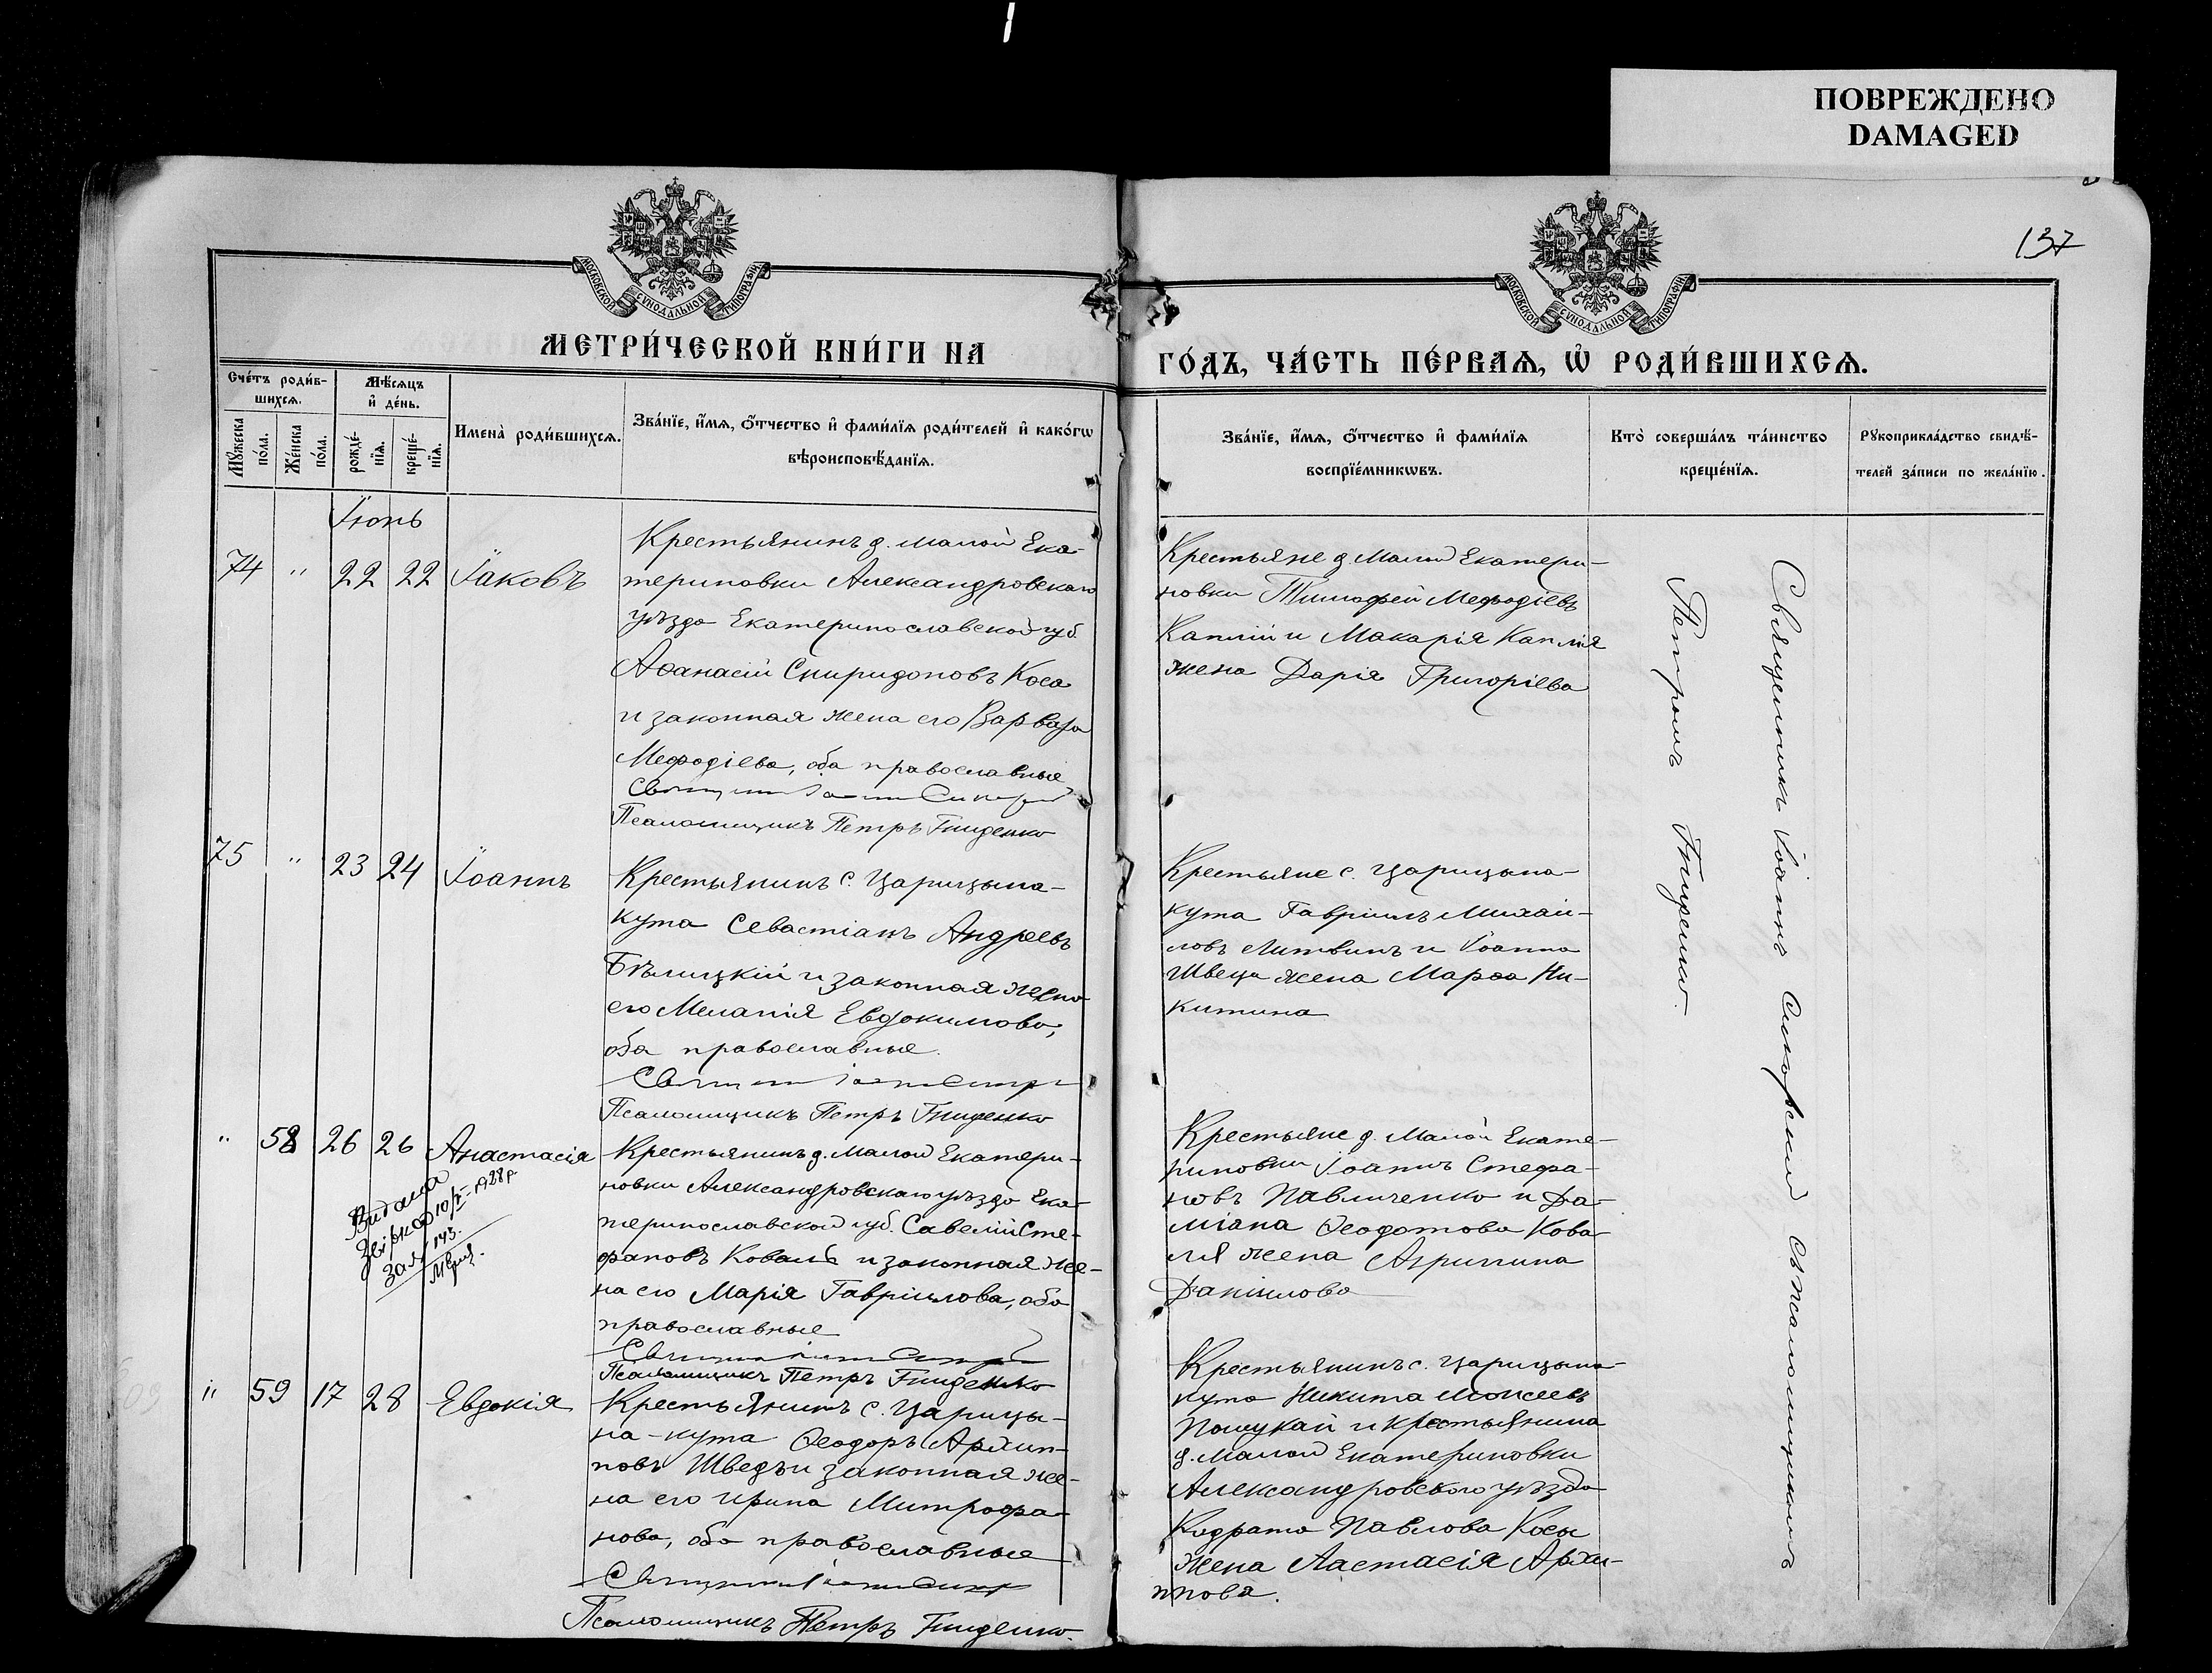 ПОВРЕЖДЕНО
DAMAGED
137
МОСКОВСКОЙ СѴНОДАЛЬНОЙ ТИПОГРАФІИ
МОСКОВСКОЙ СѴНОДАЛЬНОЙ ТИПОГРАФІИ
МЕТРИ́ЧЕСКОЙ КНИ́ГИ НА
ГО́ДЪ, ЧА́СТЬ ПЕ́РВАѦ, Ѡ҆ РОДИ́ВШИХСѦ.
Сче́тъ роди́в-
шихсѧ.
Мѣ́сѧцъ
и҆ де́нь.
Мꙋ́жеска
по́ла.
Же́нска
по́ла.
рожде́-
нїѧ.
креще́-
нїѧ.
Имена̀ роди́вшихсѧ.
Зва́нїе, и҆́мѧ, ѻ҆́тчество и҆ фами́лїѧ роди́телей и҆ како́гѡ
вѣроисповѣ́данїѧ.
Зва́нїе, и҆́мѧ, ѻ҆́тчество и҆ фами́лїѧ
воспрїе́мникѡвъ.
Кто̀ соверша́лъ та́инство
креще́нїѧ.
Рꙋкоприкла́дство свидѣ́-
телей за́писи по жела́нїю.
Іюнь
74 " 22 22 Іаковъ
Крестьянинъ д. Малой Ека-
териновки Александровскаго
уѣзда Екатеринославской губ.
Аѳанасій Спиридоновъ Коса
и законная жена его Варвара
Меѳодіева, оба православные
Псаломщикъ Петръ Гниденко
Крестьяне д Малой Екатери-
новки Тимофей Мефодіевъ
Каплій и Макарія Каплія
жена Дарія Григоріева
75 " 23 24 Іоаннъ
Крестьянинъ с. Царицына-
кута Севастіанъ Андреевъ
Бѣлицкій и законная жена
его Меланія Евдокимова,
оба православные.
Псаломщикъ Петръ Гниденко
Крестьяне с. Царицына-
кута Гавріилъ Михаи-
ловъ Литвинъ и Іоанна
Швеца жена Марѳа Ни-
китина
" 58 26 26 Анастасія
Видана
10/X-1928 р.
143.
Крестьянинъ д. Малой Екатери-
новки Александровскаго уѣзда Ека-
теринославской губ. Савелій Сте-
фановъ Коваль и законная же-
на его Марія Гавріилова, оба
православные
Псаломщикъ Петръ Гниденко
Крестьяне д. Малой Екате-
риновки Іоаннъ Стефа-
новъ Павличенко и Да-
міана Ѳеодотова Кова-
ля жена Агриппина
Даніилова
" 59 17 28 Евдокія
Крестьянинъ с. Царицы-
на-кута Ѳеодоръ Архип-
повъ Шведъ и законная же-
на его Ирина Митрофа-
нова, оба православные
Псаломщикъ Петръ Гниденко.
Крестьянинъ с. Царицына-
кута Никита Моисеевъ
и крестьянина
д. Малой Екатериновки
Александровскаго уѣзда
Кодрата Павлова Косы
жена Анастасія Архи-
ппова.
Священникъ Іоаннъ съ псаломщикомъ
Петромъ Гниденко.